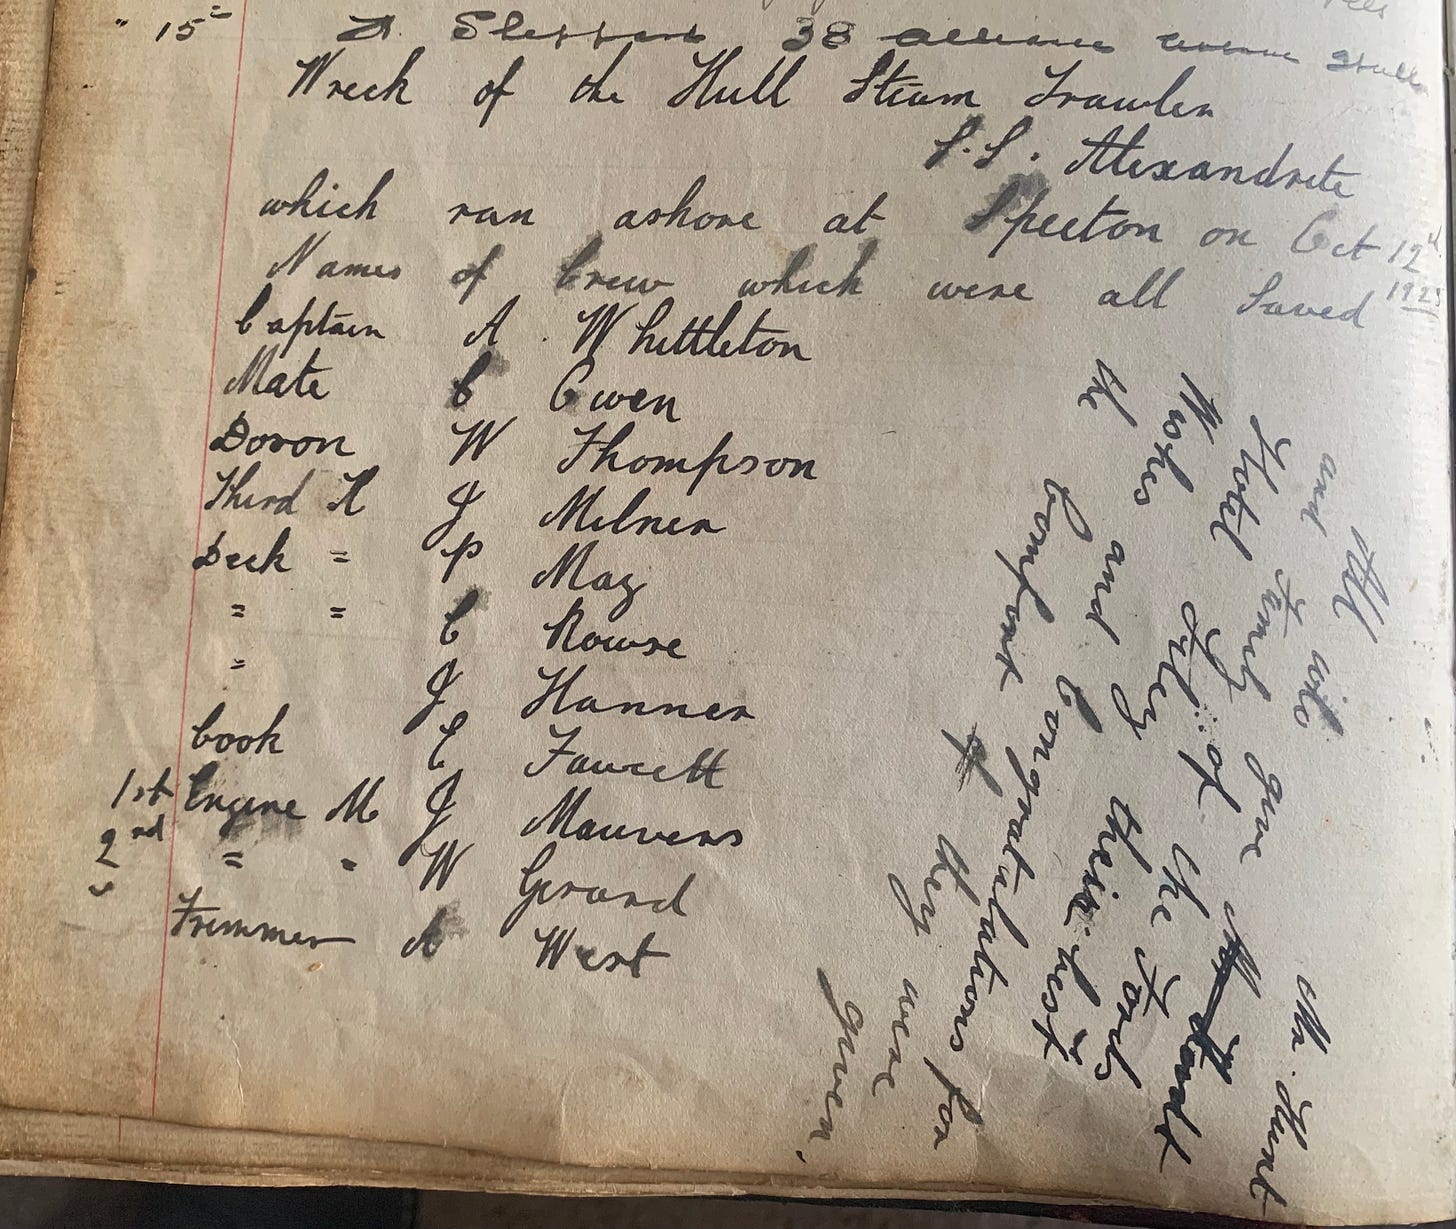 " 15 A. Sheppard 38 Alliance Avenue Hull
Wreck of the Hull Steam Trawler
S.S. Alexandrite
which ran ashore at Speeton on Oct 12th
Names of Crew which were all Saved
Captain A. Whittleton
Mate C Owen
Boson W Thompson
Third H J Milner
Deck = P May
= = C Rowse
= J Hanner
Cook E Fawcett
1st Engine M J Mauvers
2nd = " W Gerard
Trimmer A West
All wish give Mr. Hunt
and Family of the
Hotel Filey
Wishes and Congratulations for
the Comfort they were given.